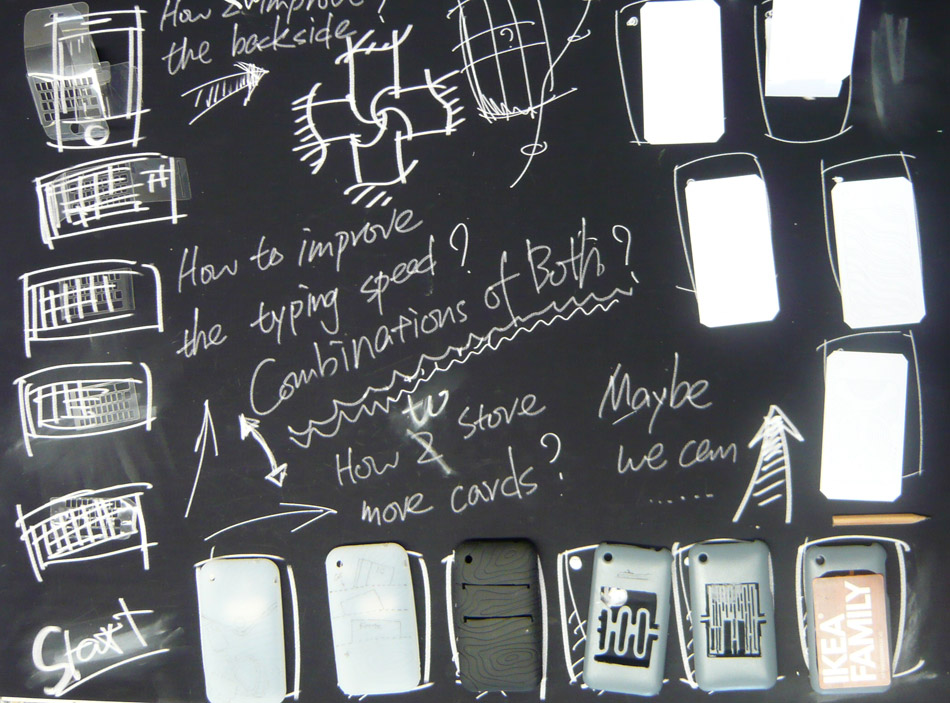 How 2 improve?
the backside
?
How to improve
the typing speed?
Combinations of Both?
to
How 2 store
more cards?
Maybe
we can
......
Start
IKEA
FAMILY